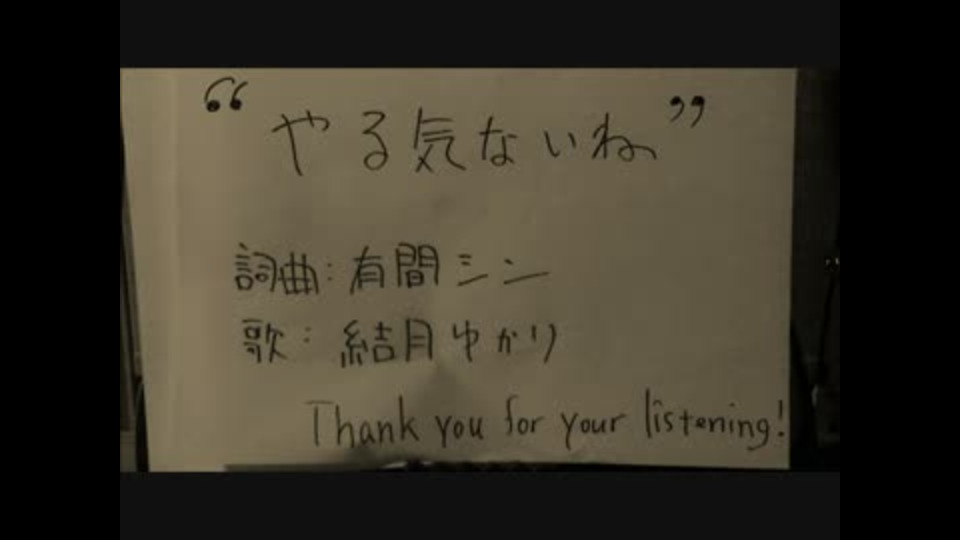 “やる気ないね”
詞曲:有間シン
歌:結月ゆかり
Thank you for your listening!